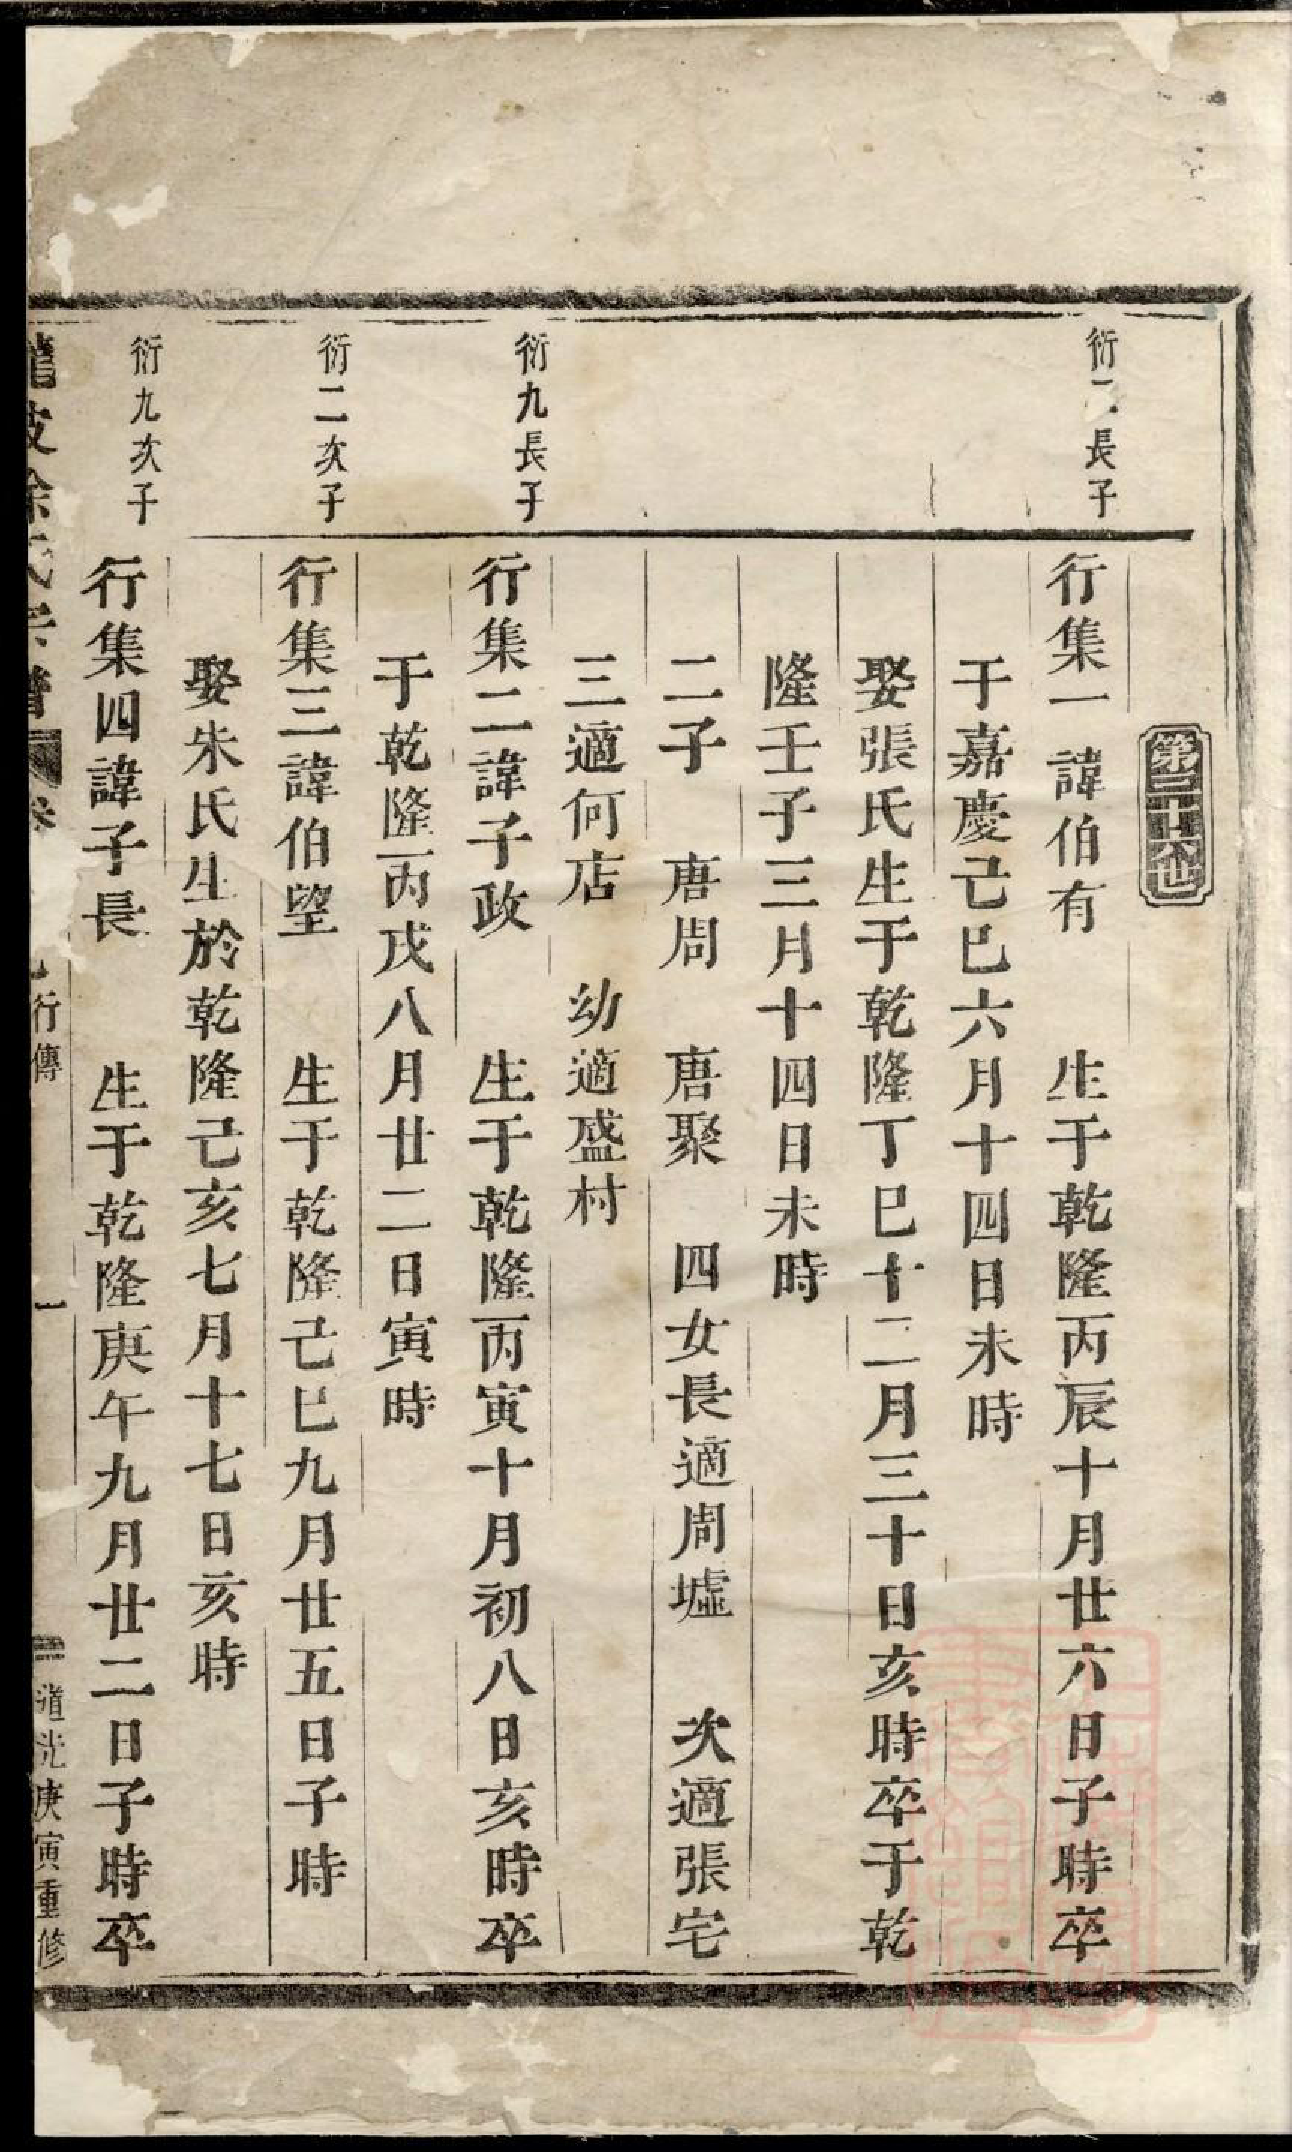 第二十六世
衍二長子
行集一諱伯有 生于乾隆丙辰十月廿六日子時卒
于嘉慶己巳六月十四日未時
娶張氏生于乾隆丁巳十二月三十日亥時卒于乾
隆壬子三月十四日未時
二子 唐周 唐聚 四女長適周墟 次適張宅
三適何店 幼適盛村
衍九長子
行集二諱子政 生于乾隆丙寅十月初八日亥時卒
于乾隆丙戌八月廿二日寅時
衍二次子
行集三諱伯望 生于乾隆己巳九月廿五日子時
娶朱氏生於乾隆己亥七月十七日亥時
衍九次子
行集四諱子長 生于乾隆庚午九月廿二日子時卒
龍坡徐氏宗譜 卷 行傳 一 道光庚寅重修